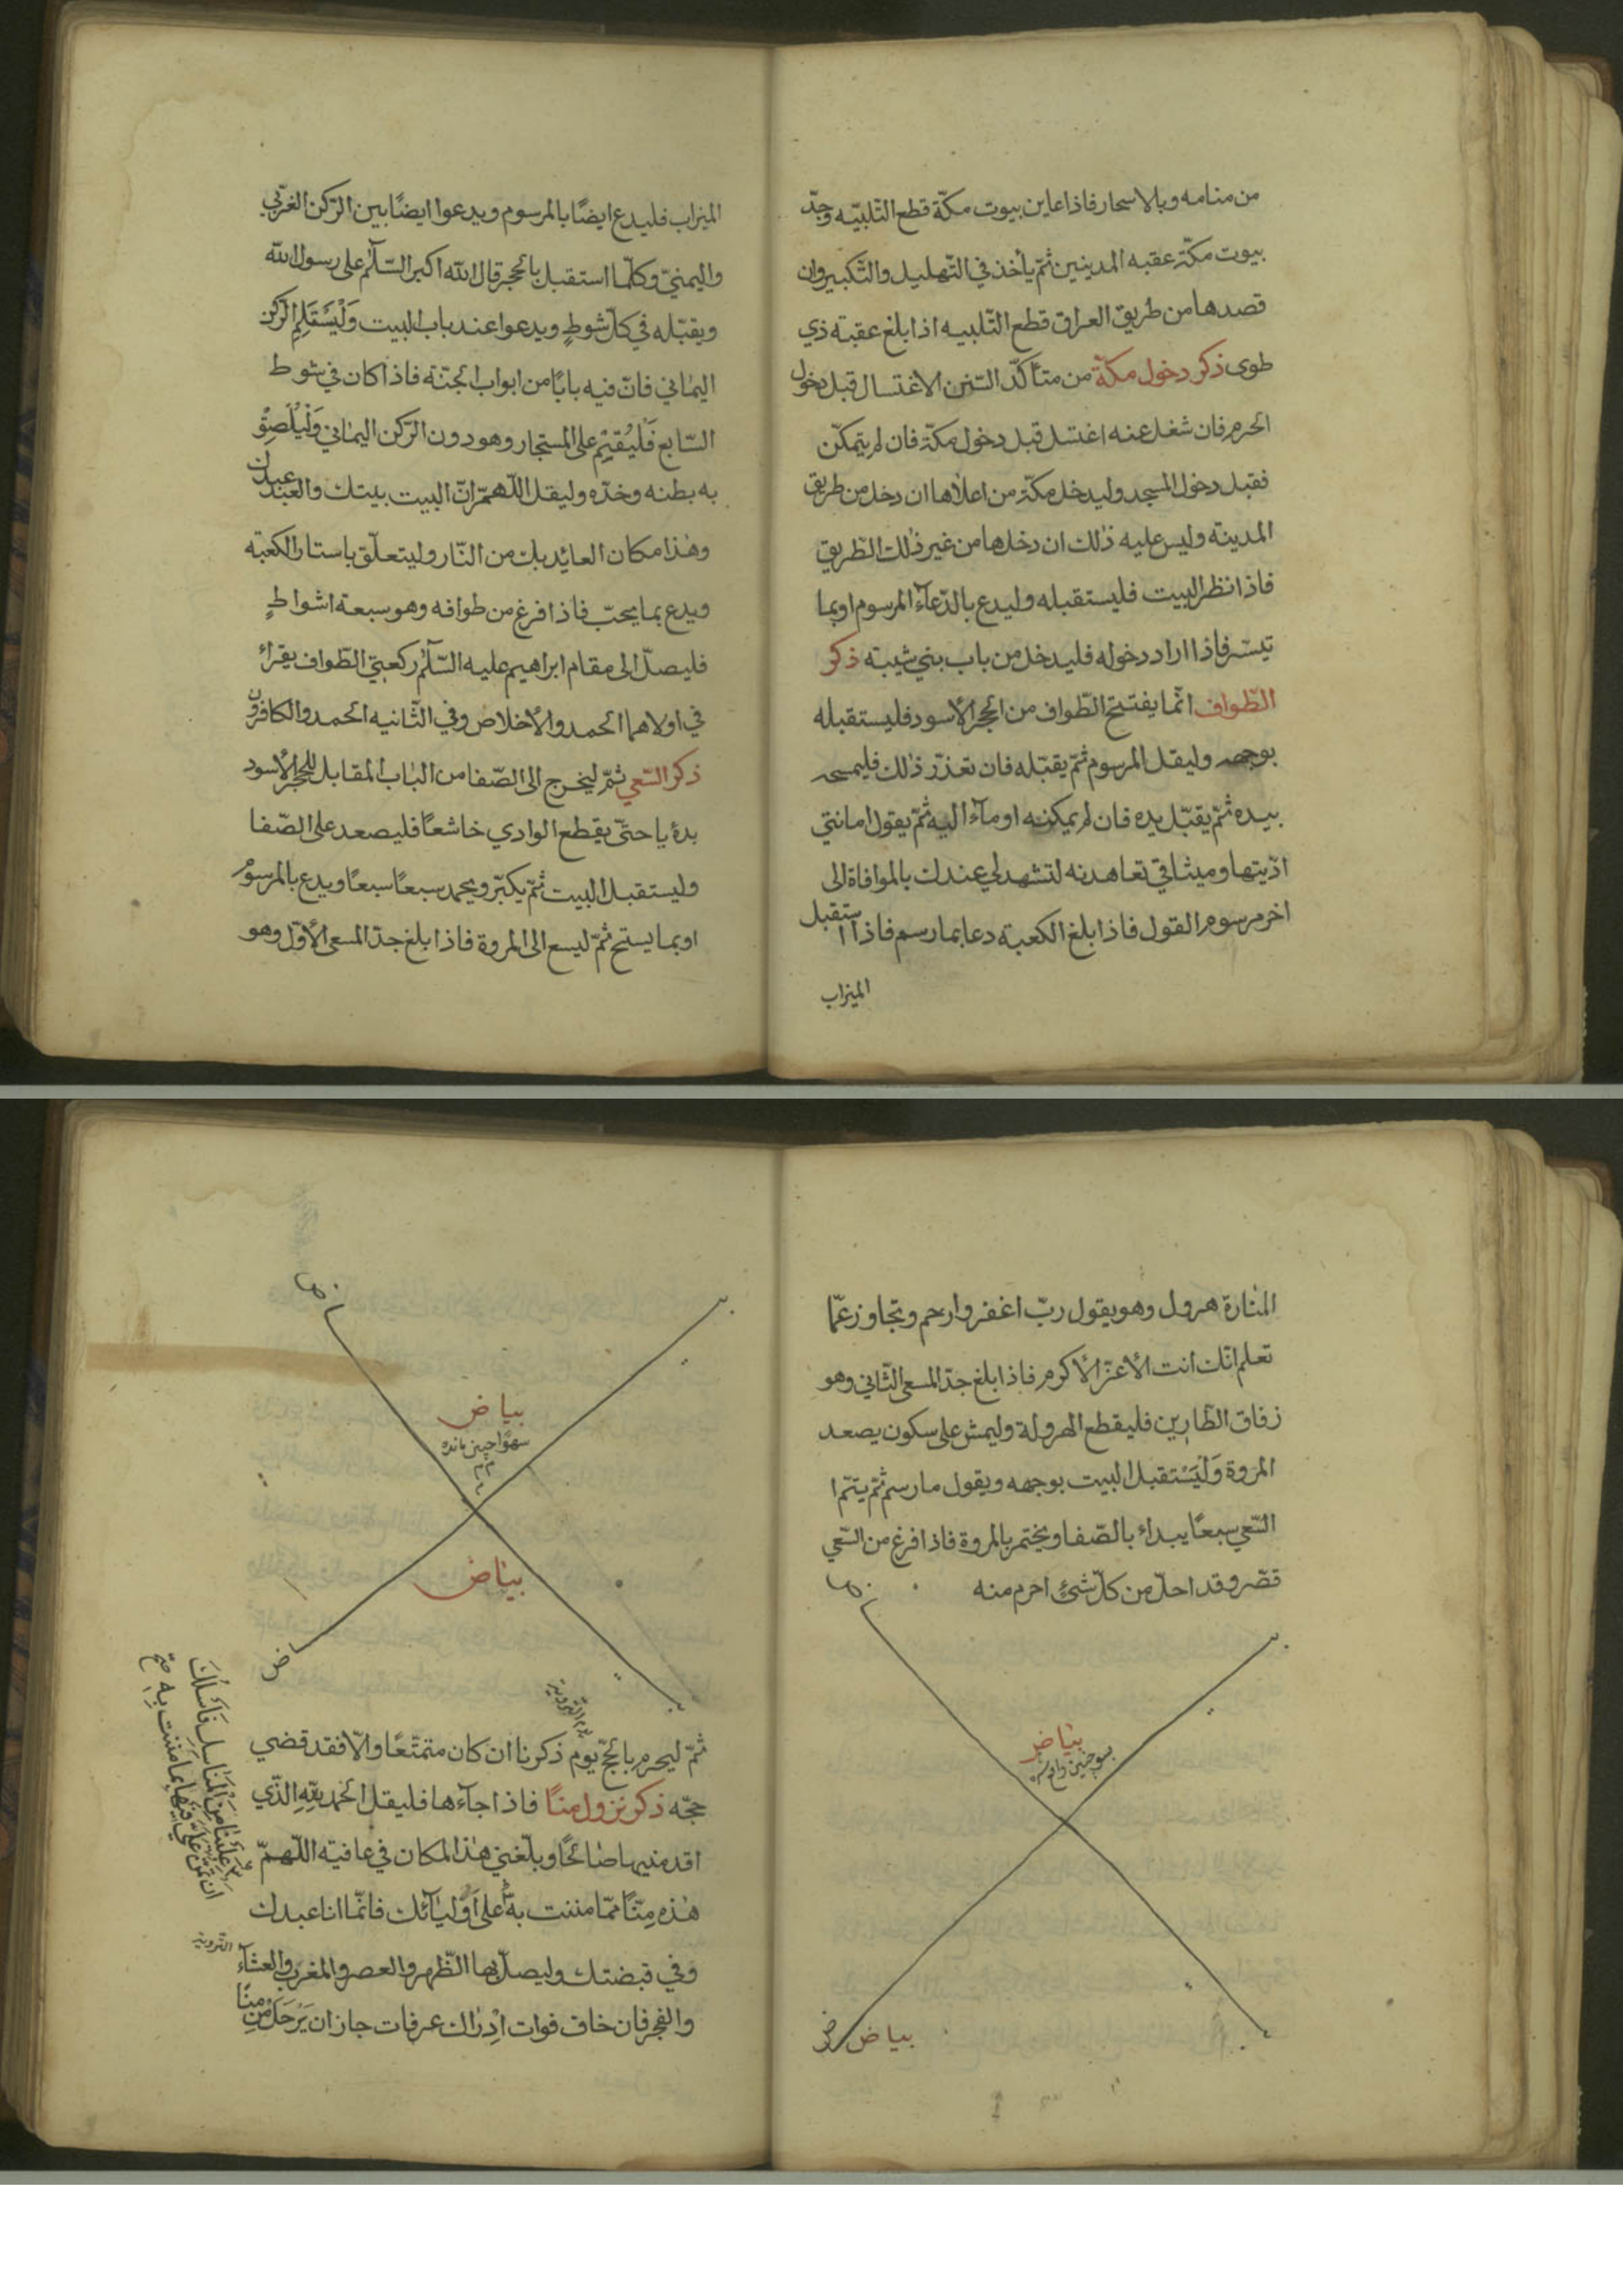 من منامه وبالاسحار فاذا عاين بيوت مكّة قطع التّلبيه وحدّ
بيوت مكّة عقبه المدينين ثمّ يأخذ في التّهليل والتّكبير وان
قصدها من طريق العراق قطع التّلبيه اذا بلغ عقبة ذي
طوى ذكر دخول مكّة من متأكّد السّنن الاغتسال قبل دخول
الحرم فان شغل عنه اغتسل قبل دخول مكّة فان لم يتمكّن
فقبل دخول المسجد وليدخل مكّة من اعلاها ان دخل من طريق
المدينة وليس عليه ذلك ان دخلها من غير ذلك الطّريق
فاذا نظر البيت فليستقبله وليدع بالدّعآء المرسوم او بما
تيسّر فاذا اراد دخوله فليدخل من باب بني شيبة ذكر
الطّواف انّما يفتتح الطّواف من الحجر الأسود فليستقبله
بوجهه وليقل المرسوم ثمّ يقبّله فان تعذّر ذلك فليمسحه
بيده ثمّ يقبّل يده فان لم يمكنه اوماء اليه ثمّ يقول امانتي
ادّيتها وميثاقي تعاهدته لتشهد لي عندك بالموافاة الى
اخر مرسوم القول فاذا بلغ الكعبة دعا بما رسم فاذا استقبل
الميزاب
الميزاب فليدع ايضًا بالمرسوم ويدعوا ايضًا بين الرّكن الغربّي
واليمنيّ وكلّما استقبل بالحجر قال الله اكبر السّلام على رسول الله
ويقبّله في كلّ شوطٍ ويدعوا عند باب البيت وَلْيَسْتَلِمِ الرّكن
اليماني فانّ فيه بابًا من ابواب الجنّة فاذا كان في شوط
السّابع فَلْيُقيّم على المستجار وهو دون الرّكن اليماني وَلْيُلْصِقْ
به بطنه وخدّه وليقل اللّهمّ انّ البيت بيتك والعبد عبدك
وهذا مكان العائذ بك من النّار وليتعلّق باستار الكعبة
ويدع بما يحبّ فاذا فرغ من طوافه وهو سبعة اشواطٍ
فليصلّ الى مقام ابراهيم عليه السّلام ركعتي الطّواف يقراء
في اولاهما الحمد والأخلاص وفي الثّانيه الحمد والكافرون
ذكر السّعي ثمّ ليخرج الى الصّفا من الباب المقابل للحجر الأسود
حتّى يقطع الوادي خاشعًا فليصعد على الصّفا
وليستقبل البيت ثمّ يكبّر ويحمد سبعًا سبعًا ويدع بالمرسوم
او بما يسنح ثمّ ليسع الى المروة فاذا بلغ حدّ المسعى الأوّل وهو
المنارة هرول وهو يقول ربّ اغفر وارحم وتجاوز عمّا
تعلم انّك انت الأعزّ الأكرم فاذا بلغ حدّ المسعى الثّاني وهو
زقاق العطّارين فليقطع الهرولة وليمش على سكون يصعد
المروة وَلْيَسْتقبل البيت بوجهه ويقول ما رسم ثمّ يتمّ
السّعي سبعًا يبداء بالصّفا ويختم بالمروة فاذا فرغ من السّعي
قصّر وقد احلّ من كلّ شئ احرم منه
بياض
بياض
بياض
سهوًا چنين مانده
بياض
يوم التّروية
ثمّ ليحرم بالحجّ يوم ذكرنا ان كان متمتّعًا والّا فقد قضي
حجّه ذكر نزول منًا فاذا جآءها فليقل الحمد للّهِ الّذي
اقدمنيها صالحًا وبلّغني هذا المكان في عافية اللّهمّ
هذه مِنًا ممّا مننت به على اوليآئك فانّما انا عبدك
وفي قبضتك وليصلّ بها الظّهر والعصر والمغرب والعشآء
والفجر فان خاف فوات اِدراك عرفات جاز ان يَرْحَلَ مِن منًا
عَلَيْنا مِنَ المَناسِك فَاَسْئَلُكَ
ان تَمُنَّ عَلَيَّ فيها بما مننت به
التروية